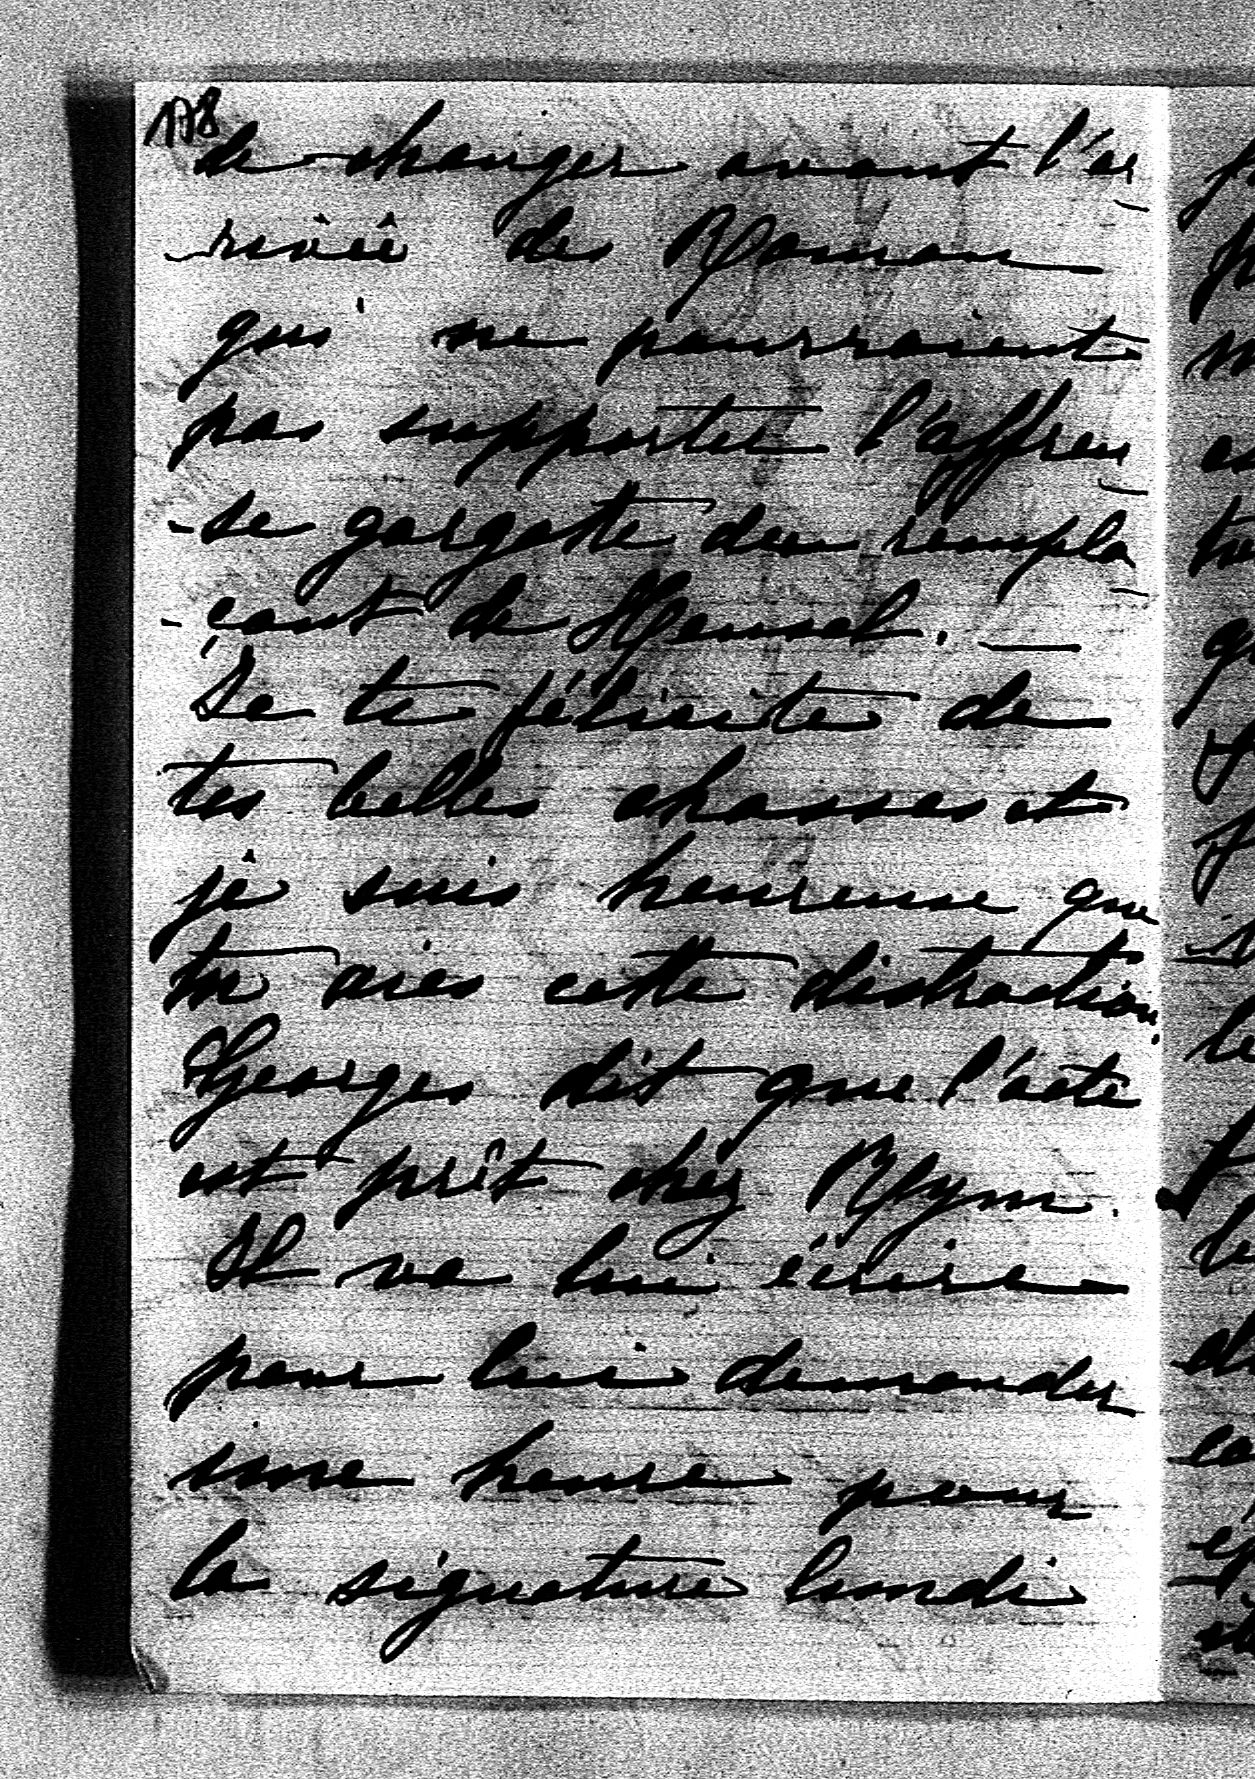 178
de changer avant l'ar
-rivée des Roman
qui ne pourraient
pas supporter l'affreu
-se gargote du rempla
-çant de Hensel. —
Je te félicite de
tes belles chasses et
je suis heureuse que
tu aies cette distraction.
Georges dit que l'acte
est prêt chez Rym.
Il va lui écrire
pour lui demander
une heure pour
la signature lundi